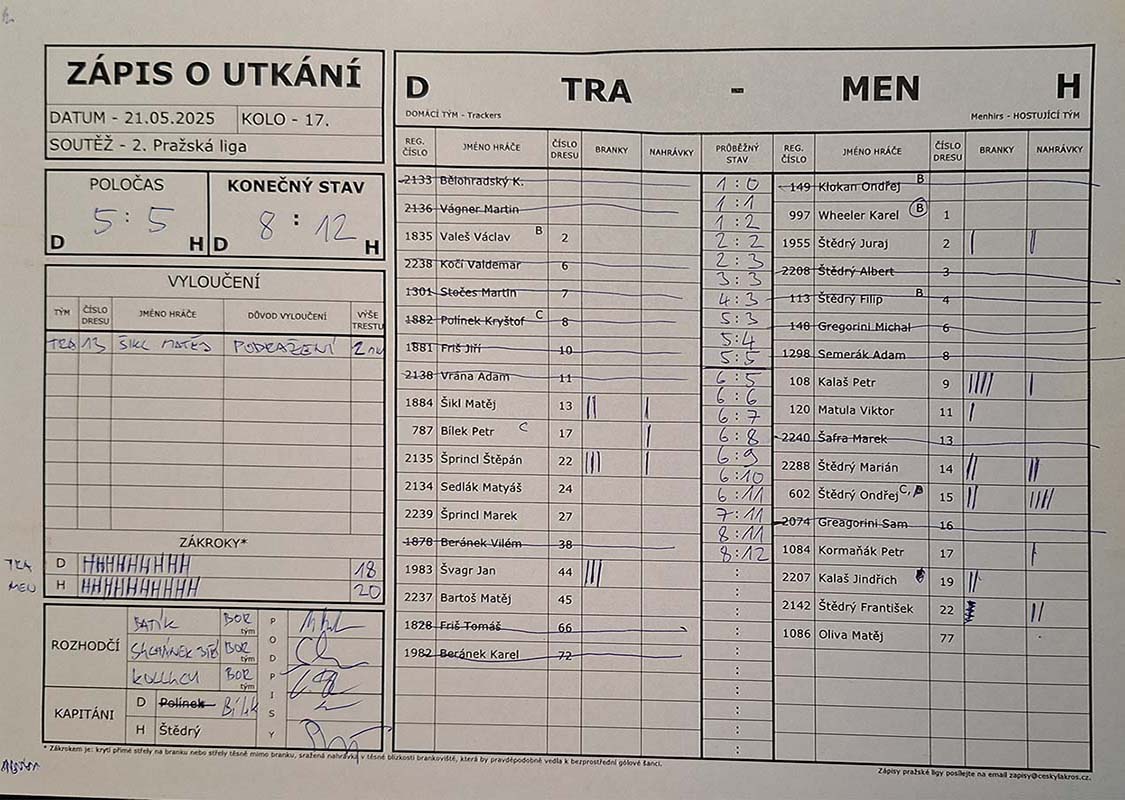 ZÁPIS O UTKÁNÍ
DATUM - 21.05.2025 KOLO - 17.
SOUTĚŽ - 2. Pražská liga
POLOČAS KONEČNÝ STAV
5 : 5 8 : 12
D H D H
VYLOUČENÍ
TÝM ČÍSLO DRESU JMÉNO HRÁČE DŮVOD VYLOUČENÍ VÝŠE TRESTU
TRA 13 ŠIKL MATĚJ PODRAŽENÍ
ZÁKROKY*
TRA D 18
MEN H 20
ROZHODČÍ
BOR tým
BOR tým
BOR tým
PODPISY
KAPITÁNI
D Polínek Bílek
H Štědrý
D TRA - MEN H
DOMÁCÍ TÝM - Trackers Menhirs - HOSTUJÍCÍ TÝM
REG. ČÍSLO JMÉNO HRÁČE ČÍSLO DRESU BRANKY NAHRÁVKY PRŮBĚŽNÝ STAV REG. ČÍSLO JMÉNO HRÁČE ČÍSLO DRESU BRANKY NAHRÁVKY
2133 Bělohradský K.
2136 Vágner Martin
1835 Valeš Václav B 2
2238 Kočí Valdemar 6
1301 Stočes Martin 7
1882 Polínek Kryštof C 8
1881 Friš Jiří 10
2138 Vrána Adam 11
1884 Šikl Matěj 13 || |
787 Bílek Petr C 17 |
2135 Šprincl Štěpán 22 ||| |
2134 Sedlák Matyáš 24
2239 Šprincl Marek 27
1878 Beránek Vilém 38
1983 Švagr Jan 44 |||
2237 Bartoš Matěj 45
1828 Friš Tomáš 66
1982 Beránek Karel 72
1 : 0
1 : 1
1 : 2
2 : 2
2 : 3
3 : 3
4 : 3
5 : 3
5 : 4
5 : 5
6 : 5
6 : 6
6 : 7
6 : 8
6 : 9
6 : 10
6 : 11
7 : 11
8 : 11
8 : 12
149 Klokan Ondřej B
997 Wheeler Karel B 1
1955 Štědrý Juraj 2 | ||
2208 Štědrý Albert 3
113 Štědrý Filip B 4
148 Gregorini Michal 6
1298 Semerák Adam 8
108 Kalaš Petr 9 |||| |
120 Matula Viktor 11 |
2240 Šafra Marek 13
2288 Štědrý Marián 14 || ||
602 Štědrý Ondřej C, 15 || ||||
2074 Greagorini Sam 16
1084 Kormaňák Petr 17 |
2207 Kalaš Jindřich 19 ||
2142 Štědrý František 22 ||
1086 Oliva Matěj 77
* Zákrokem je: krytí přímé střely na branku nebo střely těsně mimo branku, sražená nahrávka v těsné blízkosti brankoviště, která by pravděpodobně vedla k bezprostřední gólové šanci.
Zápisy pražské ligy posílejte na email zapisy@ceskylakros.cz.